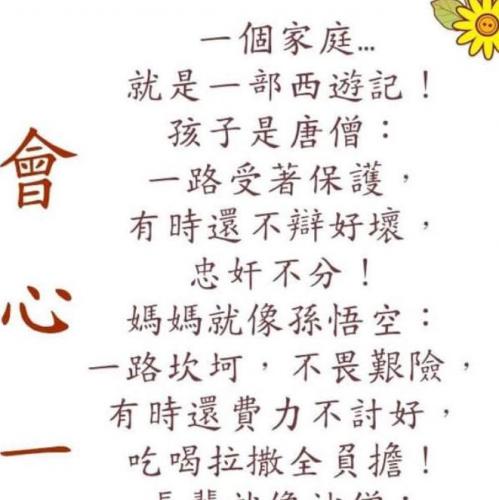 一個家庭…
就是一部西遊記！
孩子是唐僧：
一路受著保護，
有時還不辯好壞，
忠奸不分！
媽媽就像孫悟空：
一路坎坷，不畏艱險，
有時還費力不討好，
吃喝拉撒全員擔！
會心一